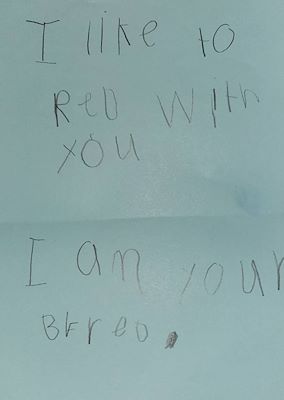 I like to
Red with
you
I am your
BFred.